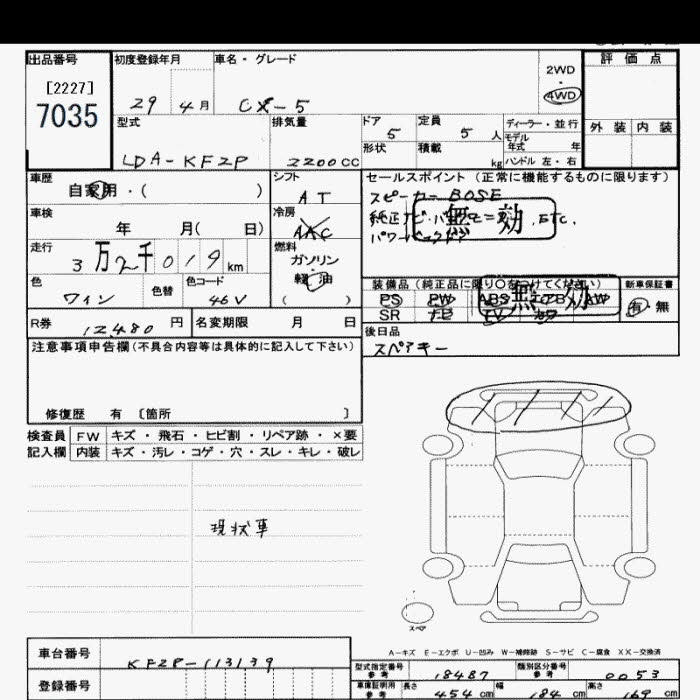 出品番号
[2227]
7035
初度登録年月
29 4月
車名・グレード
CX-5
2WD
・
4WD
評価点
外装 内装
型式
LDA-KF2P
排気量
2200CC
ドア
5
定員
5 人
形状
積載
kg
ディーラー・並行
モデル
年式 年
ハンドル 左・右
車歴
自家用・( )
シフト
AT
車検
年 月( 日)
冷房
AAC
走行
3万2千019km
燃料
ガソリン
・
軽油
( )
色
ワイン
色替
色コード
46V
セールスポイント(正常に機能するものに限ります)
スピーカー BOSE
無効
ETC.
装備品(純正品に限り○をつけてください)
PS PW ABS エアB AW
SR ナビ TV カワ
無効
新車保証書
有・無
R券
12480 円
名変期限 月 日
後日品
スペアキー
注意事項申告欄(不具合内容等は具体的に記入して下さい)
修復歴 有 〔箇所 〕
検査員 FW キズ・飛石・ヒビ割・リペア跡・×要
記入欄 内装 キズ・汚レ・コゲ・穴・スレ・キレ・破レ
現状車
スペア
A-キズ E-エクボ U-凹み W-補修跡 S-サビ C-腐食 XX-交換済
車台番号
KF2P-113139
登録番号
型式指定番号
参考
18487
類別区分番号
参考
0053
車庫証明用
参考
長さ
454 cm
幅
184 cm
高さ
169 cm